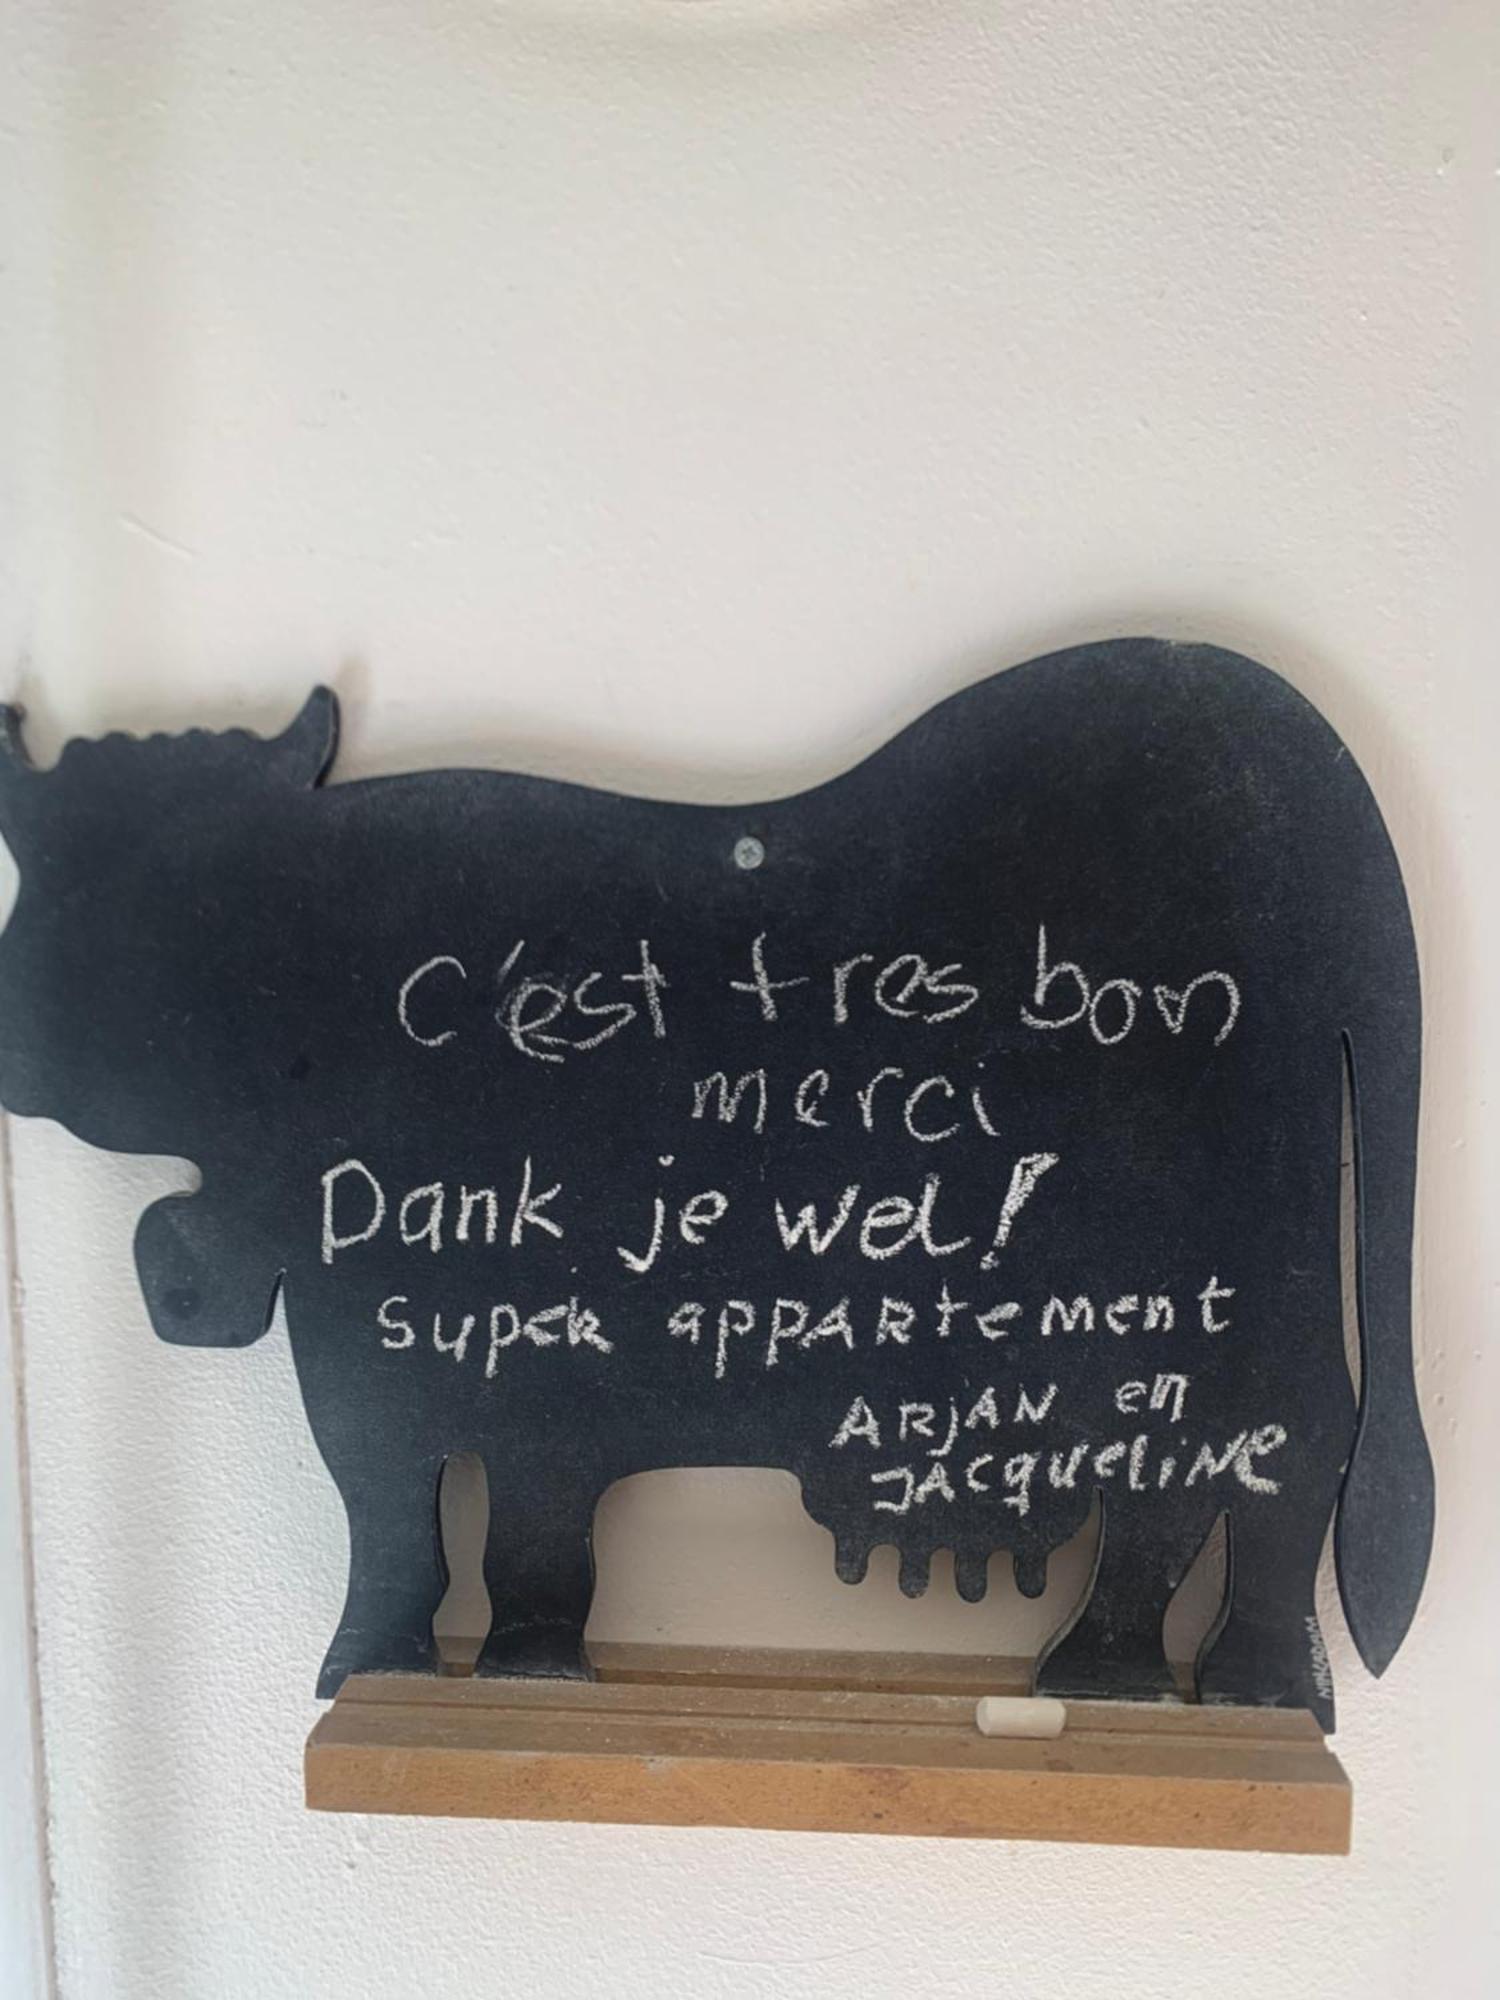 c'est tres bon
merci
Dank je wel!
super appartement
ARjAN en
JAcqueliNe